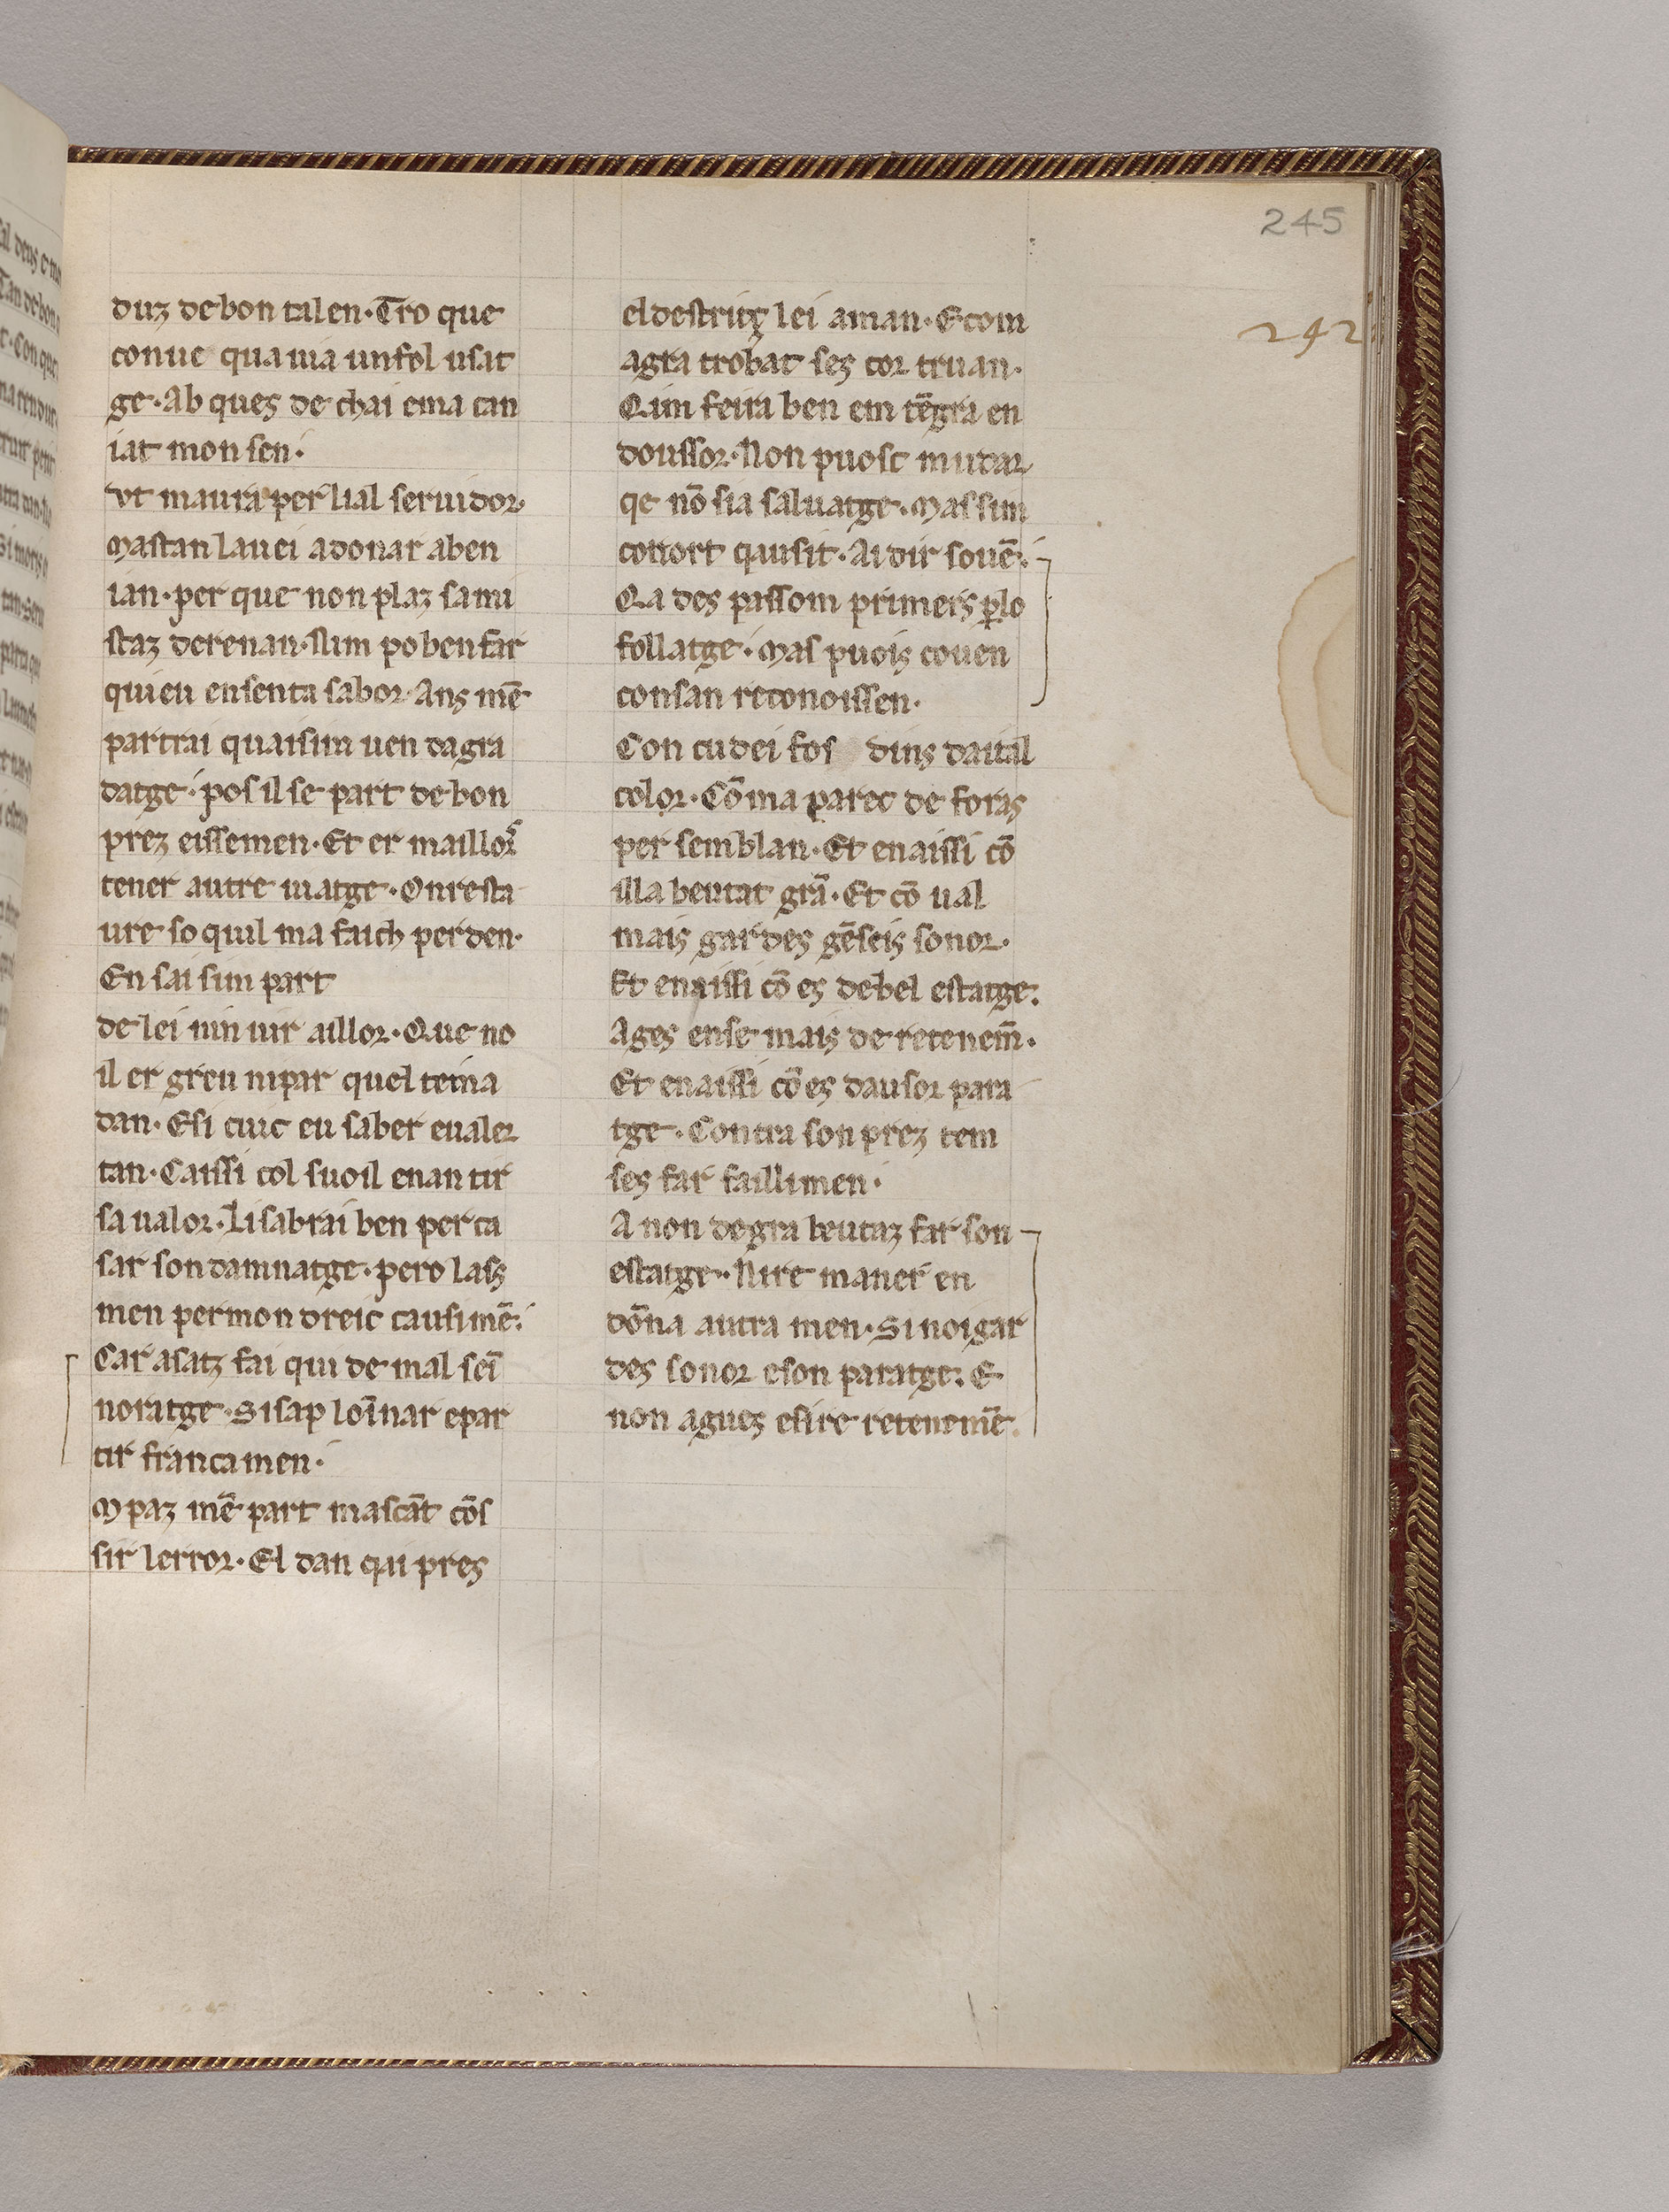 245
242
duz de bon talen· Tro que
conue qua uia un fol usat
ge· Ab ques de chai ema can
iat mon sen·
Vt maura per lial seruidor·
Mas tan lauei adonar aben
ian· per que non plaz sa mi
staz derenan· Nim po ben far
quieu en senta sabor· Ans mē
partrai quaisim uen dagra
datge· pos il se part de bon
prez eissemen· Et er maillor
tener autre uiatge· On resta
ure so quil ma faich perden·
En sai sim part
de lei nin uir aillor· Que no
il er greu nipar quel teina
dan· E si ciuc eu saber eualer
tan· Caissi col suoil enantir
sa ualor· Li sabrai ben perca
sar son damnatge· pero lass
men per mon dreic causimē·
Car asatz fai qui de mal sei
noratge· Si sap loīnar epar
tir francamen·
M paz mē part mas cāt cōs
sir lerror· El dan qai pres
el destrug lei aman· E com
agra trobat ses cor truan·
Qim feira ben em tēgra en
doussor· Non puosc mudar
qe nō sia saluatge· Mas sim
conort qausit· Ai dir souē·
Qa des passom primers ꝑlo
follatge· Mas puois couen
consan reconoissen·
Con cudei fos dins daital
color· Cōma parec de foras
per semblan· Et enaissi cō
illa beutat grā· Et cō ual
mais gardes gēseis sonor·
Et enaissi cō es de bel estatge·
Ages en se mais de retenem̄·
Et enaissi cō es dausor para
tge· Contra son prez tem
ses far faillimen·
A non degra beutaz far son
estatge· Nire maner en
dōna autra men· Si noi gar
des sonor eson paratge· E
non agues esire retenemē·